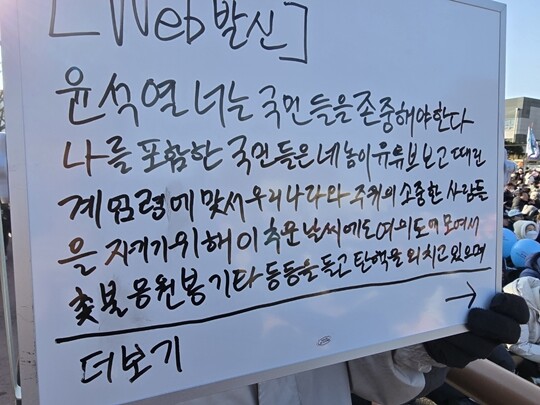 [Web발신]
윤석열 너는 국민들을 존중해야한다
나를 포함한 국민들은 네놈이 유튜브보고 때린
계엄령에 맞서 우리나라와 주위의 소중한 사람들
을 지키기위해 이 추운 날씨에도 여의도에 모여서
촛불 응원봉 기타 등등을 들고 탄핵을 외치고 있으며
→
더보기